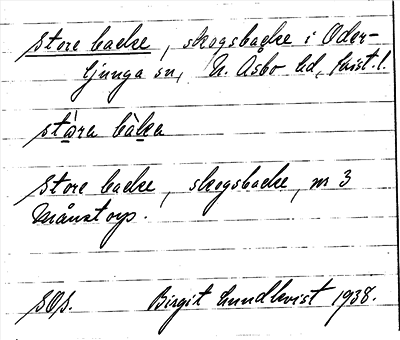 Store backe, skogsbacke i Oder-
ljunga sn, N. Åsbo hd, Krist. l.
stàra bàka
Store backe, skogsbacke, nr 3
Månstorp.
SOS. Birgit Lundkvist 1938.